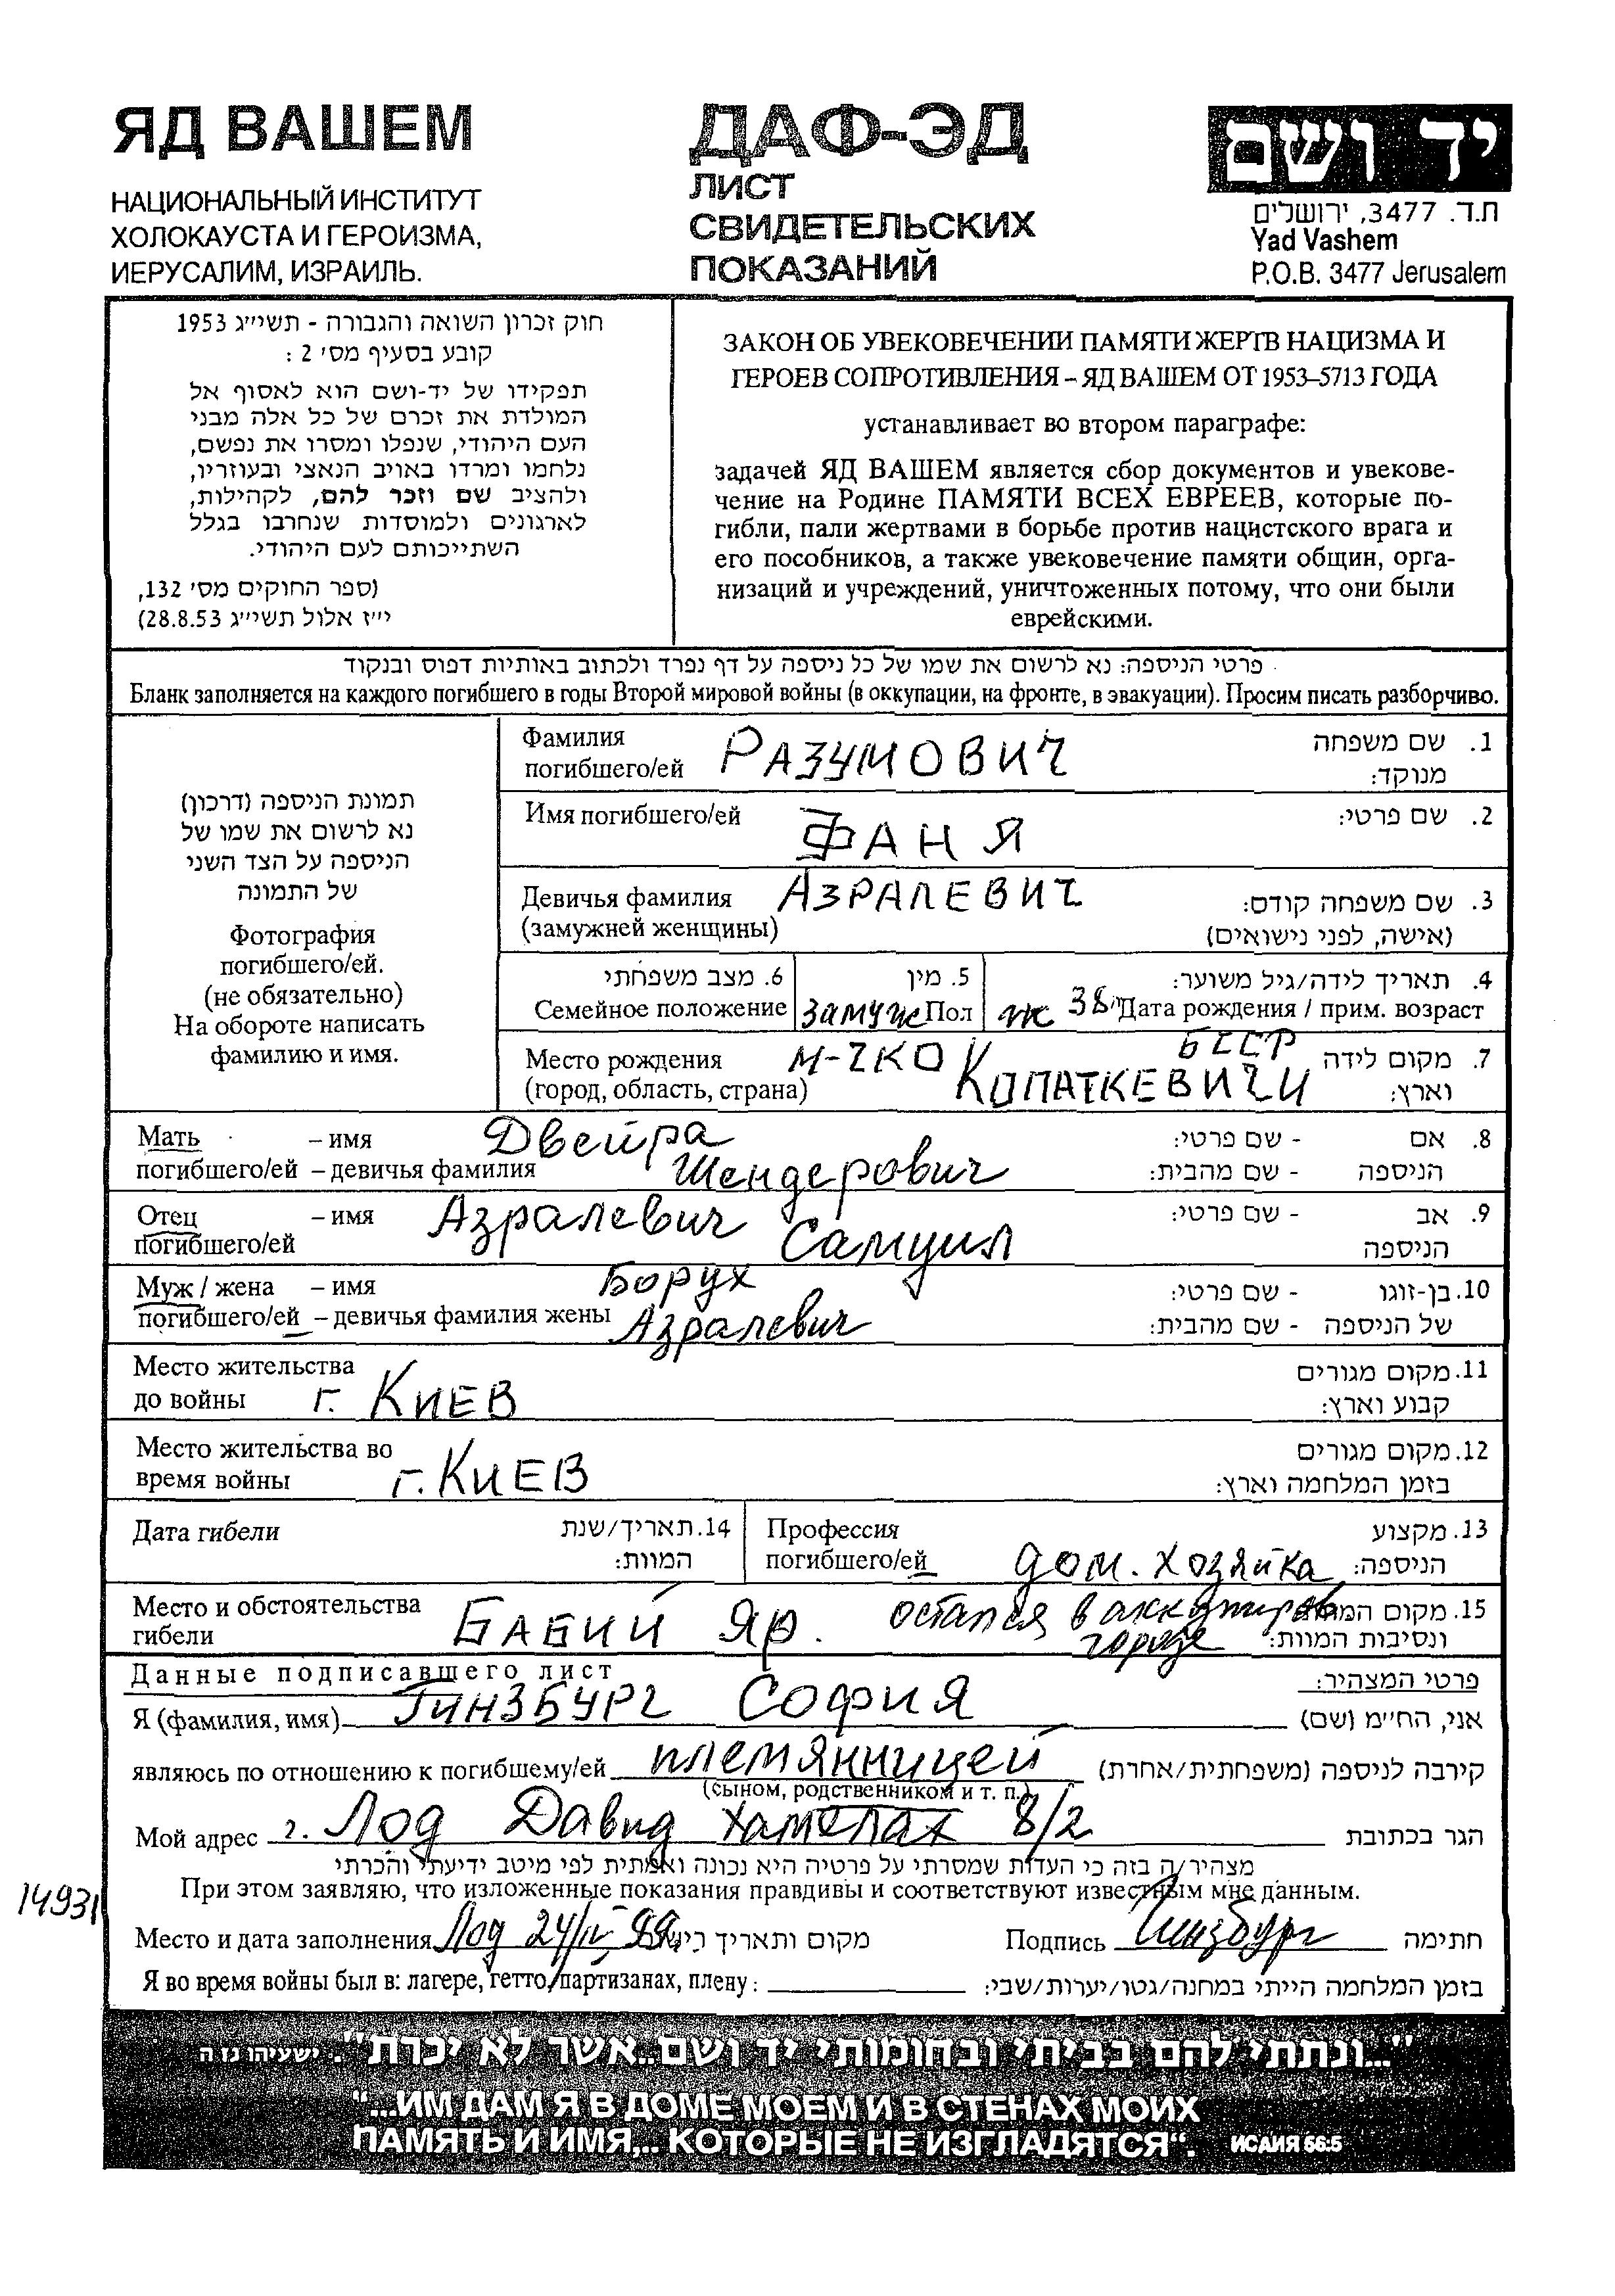 ЯД ВАШЕМ
НАЦИОНАЛЬНЫЙ ИНСТИТУТ
ХОЛОКАУСТА И ГЕРОИЗМА,
ИЕРУСАЛИМ, ИЗРАИЛЬ.
ДАФ-ЭД
ЛИСТ
СВИДЕТЕЛЬСКИХ
ПОКАЗАНИЙ
יד ושם
ת.ד. 3477, ירושלים
Yad Vashem
P.O.B. 3477 Jerusalem
חוק זכרון השואה והגבורה - תשי״ג 1953
קובע בסעיף מס׳ 2 :
תפקידו של יד-ושם הוא לאסוף אל
המולדת את זכרם של כל אלה מבני
העם היהודי, שנפלו ומסרו את נפשם,
נלחמו ומרדו באויב הנאצי ובעוזריו,
ולהציב שם וזכר להם, לקהילות,
לארגונים ולמוסדות שנחרבו בגלל
השתייכותם לעם היהודי.
(ספר החוקים מס׳ 132,
י״ז אלול תשי״ג 28.8.53)
ЗАКОН ОБ УВЕКОВЕЧЕНИИ ПАМЯТИ ЖЕРТВ НАЦИЗМА И
ГЕРОЕВ СОПРОТИВЛЕНИЯ – ЯД ВАШЕМ ОТ 1953–5713 ГОДА
устанавливает во втором параграфе:
задачей ЯД ВАШЕМ является сбор документов и увекове-
чение на Родине ПАМЯТИ ВСЕХ ЕВРЕЕВ, которые по-
гибли, пали жертвами в борьбе против нацистского врага и
его пособников, а также увековечение памяти общин, орга-
низаций и учреждений, уничтоженных потому, что они были
еврейскими.
פרטי הניספה: נא לרשום את שמו של כל ניספה על דף נפרד ולכתוב באותיות דפוס ובנקוד
Бланк заполняется на каждого погибшего в годы Второй мировой войны (в оккупации, на фронте, в эвакуации). Просим писать разборчиво.
תמונת הניספה (דרכון)
נא לרשום את שמו של
הניספה על הצד השני
של התמונה
Фотография
погибшего/ей.
(не обязательно)
На обороте написать
фамилию и имя.
Фамилия РАЗУМОВИЧ 1. שם משפחה
погибшего/ей מנוקד:
Имя погибшего/ей ФАНЯ 2. שם פרטי:
Девичья фамилия АЗРАЛЕВИЧ 3. שם משפחה קודם:
(замужней женщины) (אישה, לפני נישואים)
6. מצב משפחתי 5. מין 4. תאריך לידה/גיל משוער:
Семейное положение замуж Пол ж 38 Дата рождения / прим. возраст
Место рождения М-ЧКО БССР 7. מקום לידה
(город, область, страна) КОПАТКЕВИЧИ וארץ:
Мать – имя Двейра 8. אם - שם פרטי:
погибшего/ей – девичья фамилия Шендерович הניספה - שם מהבית:
Отец – имя Азралевич 9. אב - שם פרטי:
погибшего/ей Самуил הניספה
Муж / жена – имя Борух 10. בן-זוגו - שם פרטי:
погибшего/ей – девичья фамилия жены Азралевич של הניספה - שם מהבית:
Место жительства 11. מקום מגורים
до войны г. КИЕВ קבוע וארץ:
Место жительства во 12. מקום מגורים
время войны г. КИЕВ בזמן המלחמה וארץ:
Дата гибели 14. תאריך/שנת
המוות:
Профессия 13. מקצוע
погибшего/ей дом. хозяйка הניספה:
Место и обстоятельства БАБИЙ ЯР. остался в аккупиров 15. מקום המוות
гибели городе ונסיבות המוות:
Данные подписавшего лист פרטי המצהיר:
Я (фамилия, имя) ГИНЗБУРГ СОФИЯ אני, הח״מ (שם)
являюсь по отношению к погибшему/ей племянницей קירבה לניספה (משפחתית/אחרת)
(сыном, родственником и т. п.)
Мой адрес г. Лод Давид Хамелах 8/2 הגר בכתובת
מצהיר/ה בזה כי העדות שמסרתי על פרטיה היא נכונה ואמתית לפי מיטב ידיעתי והכרתי
При этом заявляю, что изложенные показания правдивы и соответствуют известным мне данным.
14931
Место и дата заполнения Лод 24/IV-99. מקום ותאריך רישום Подпись Гинзбург חתימה
Я во время войны был в: лагере, гетто, партизанах, плену: בזמן המלחמה הייתי במחנה/גטו/יערות/שבי:
"...ונתתי להם בביתי ובחומותי יד ושם...אשר לא יכרת". ישעיהו נו ה
"...ИМ ДАМ Я В ДОМЕ МОЕМ И В СТЕНАХ МОИХ
ПАМЯТЬ И ИМЯ... КОТОРЫЕ НЕ ИЗГЛАДЯТСЯ". ИСАИЯ 56:5